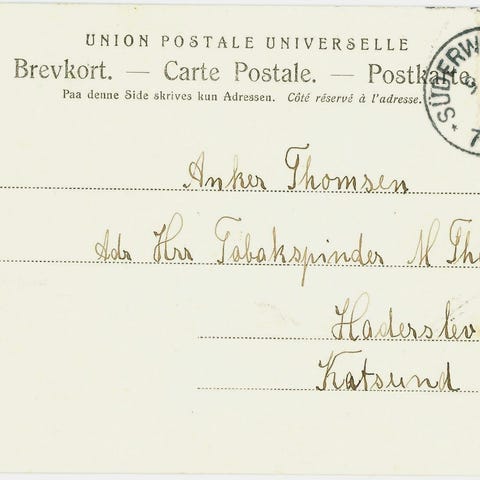 UNION POSTALE UNIVERSELLE
Brevkort. — Carte Postale. — Postkarte.
Paa denne Side skrives kun Adressen. Côté réservé à l'adresse.
* SÜDERW
Anker Thomsen
Adr Hrr Tobakspinder M Th
Haderslev
Katsund